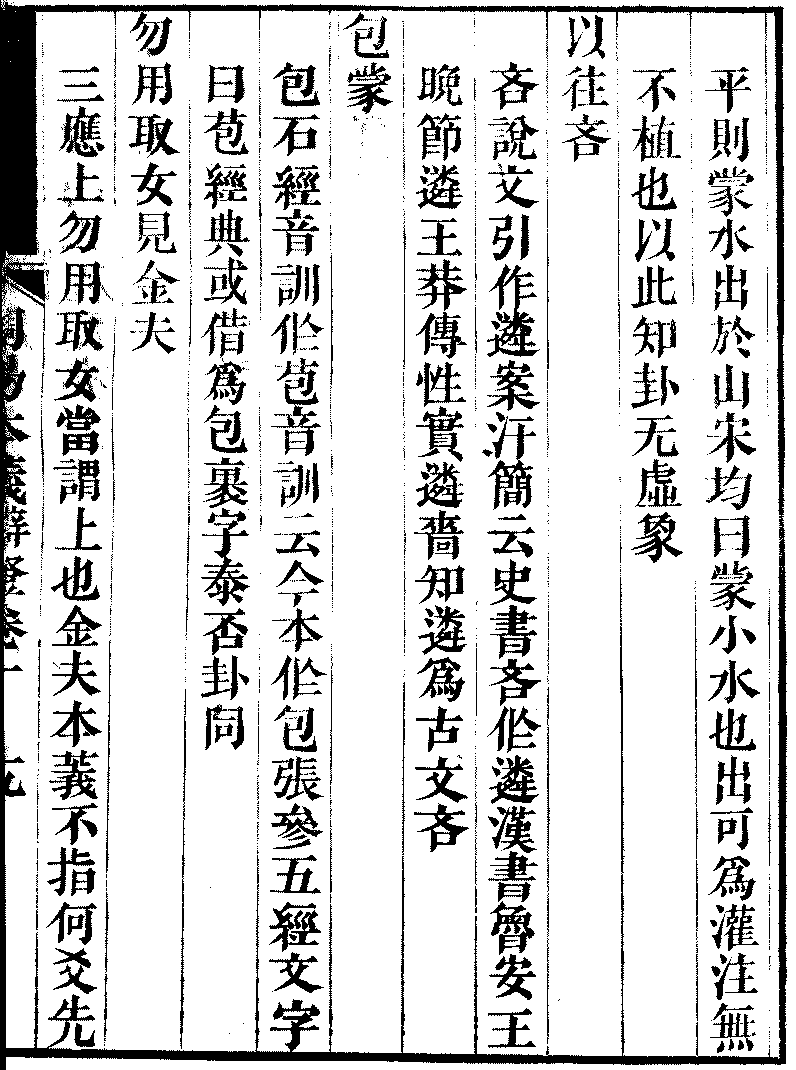 平則蒙水出於山宋均曰蒙小水也出可爲灌注無
不植也以此知卦无虛象
以往吝
吝說文引作遴案汗簡云史書吝作遴漢書魯安王
晚節遴王莽傳性實遴嗇知遴爲古文吝
包蒙
包石經音訓作苞音訓云今本作包張參五經文字
曰苞經典或借爲包裹字泰否卦同
勿用取女見金夫
三應上勿用取女當謂上也金夫本義不指何爻先
周易本義辯證卷一 九